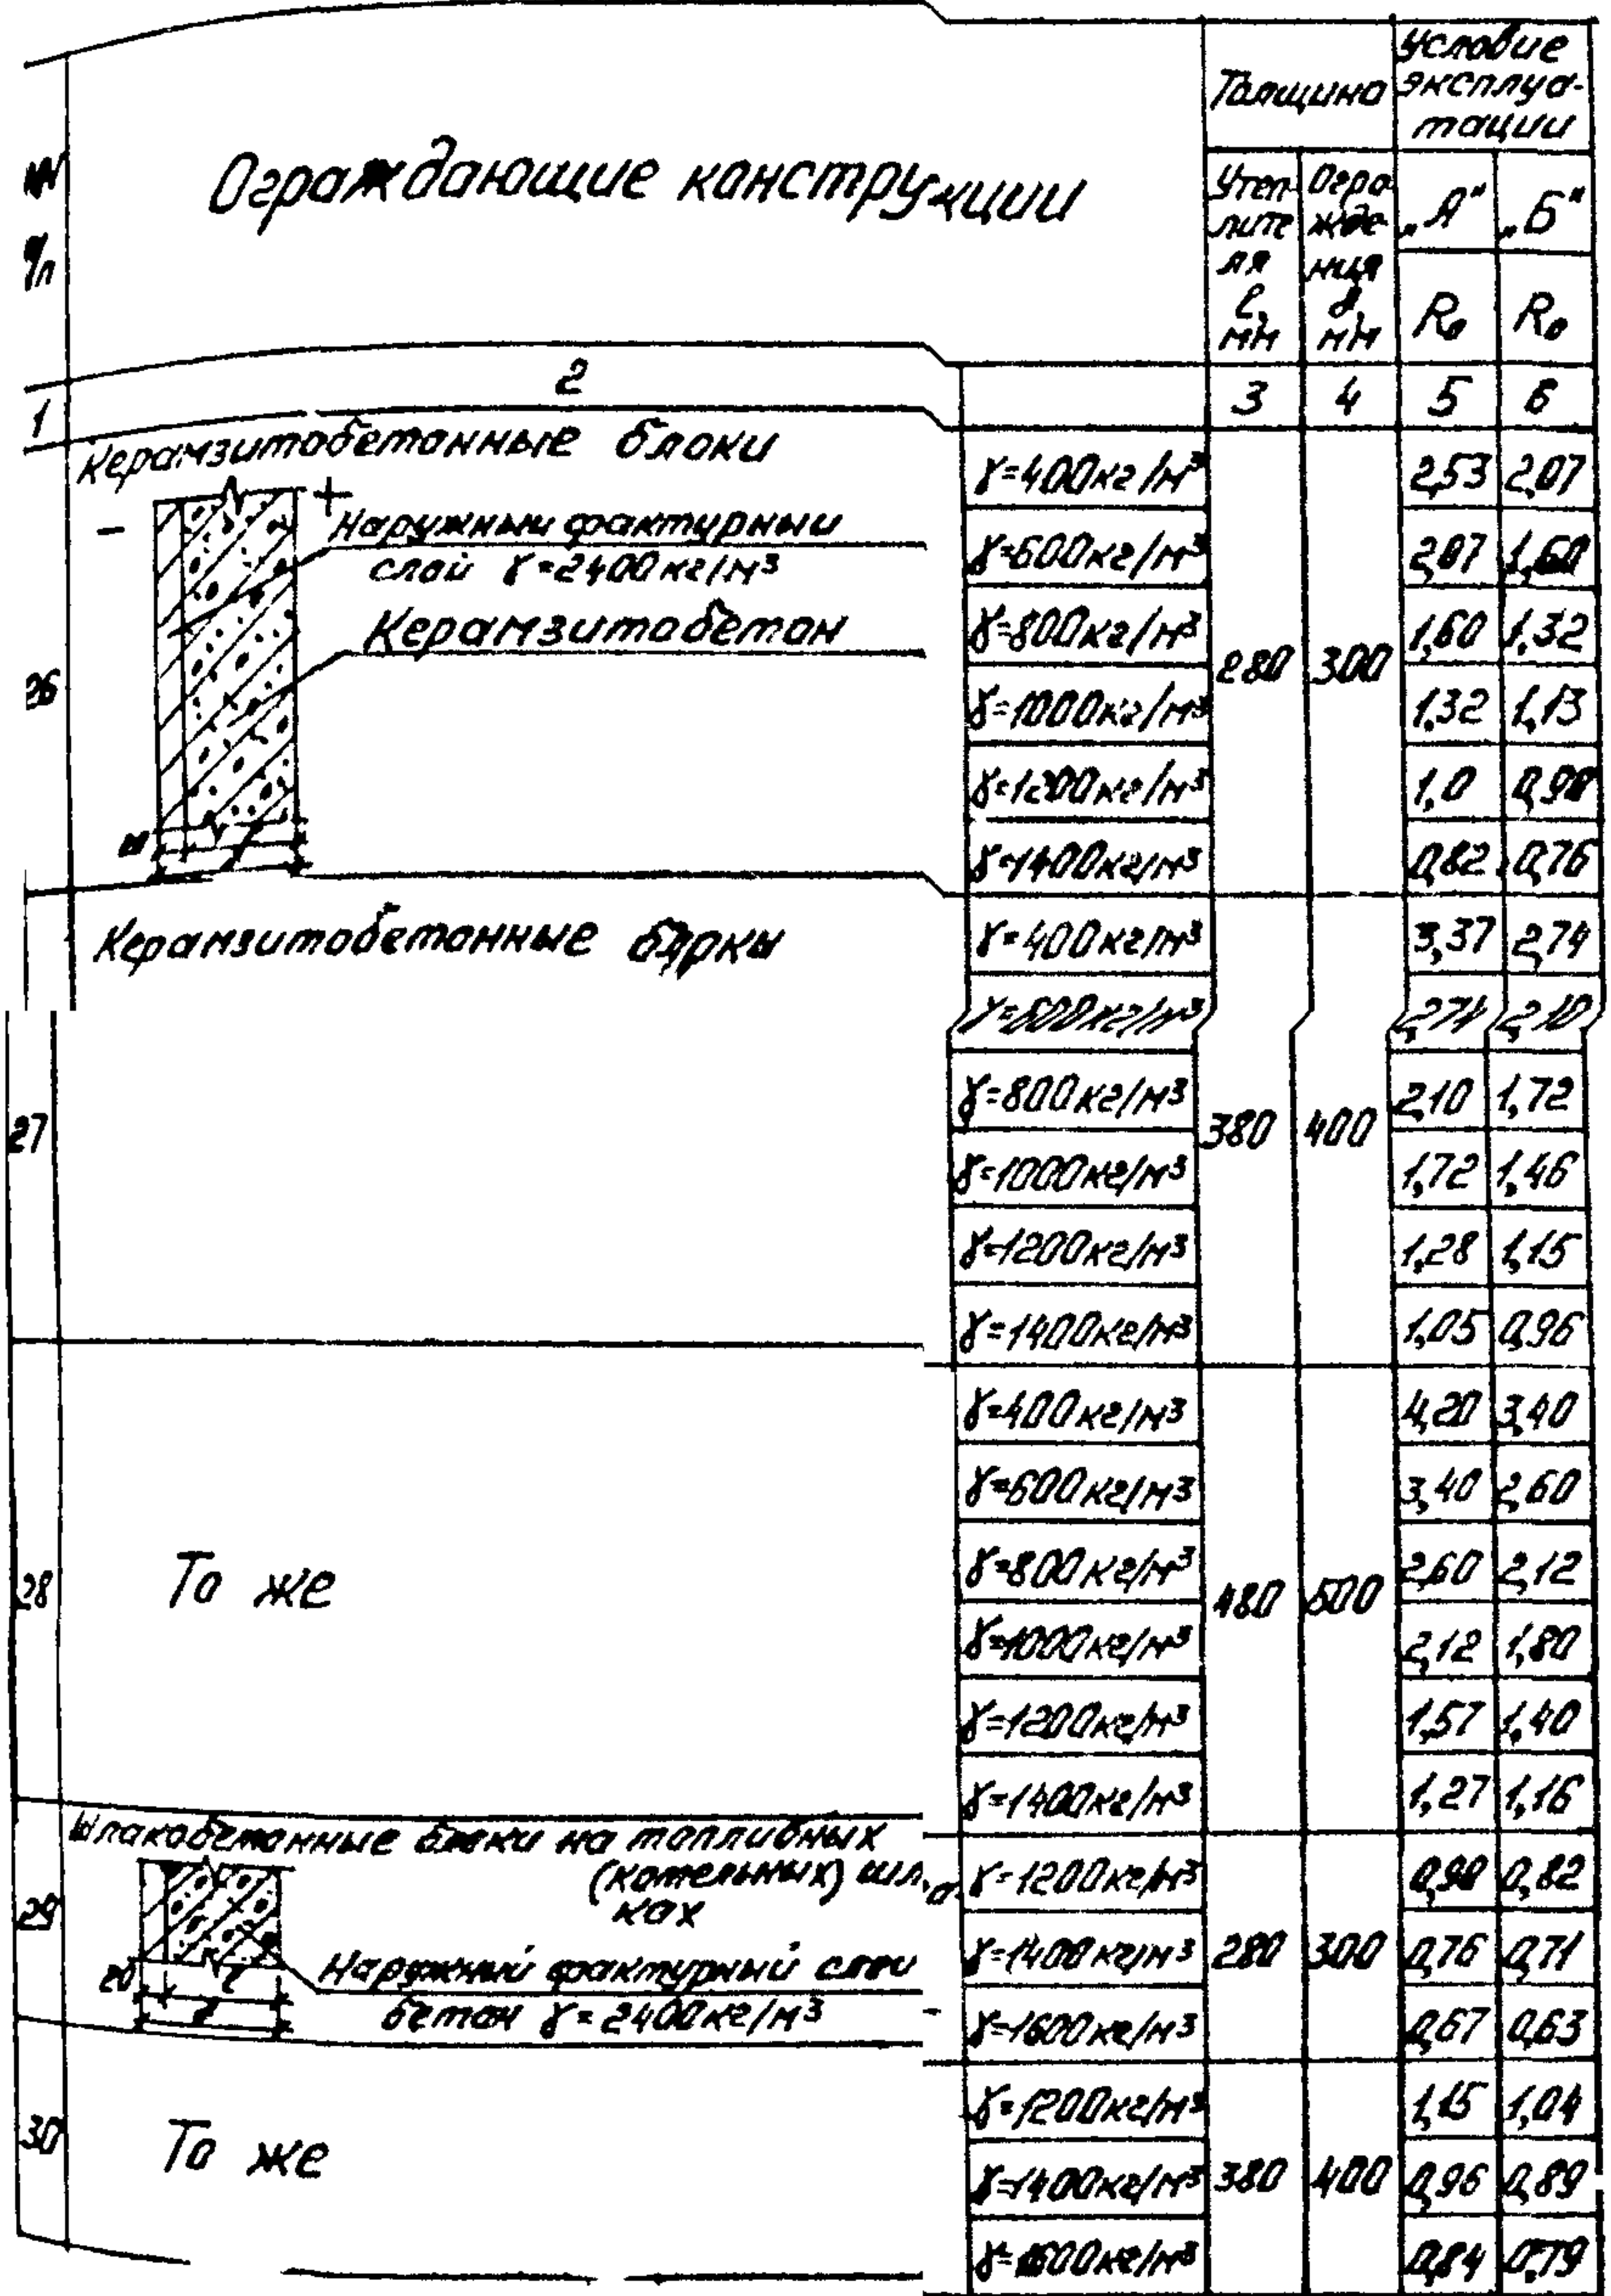 NN
п/п
Ограждающие конструкции
Толщина
Условие
эксплуа-
тации
Утеп-
лите
ля
ℓ,
мм
Огра
жде
ния
δ,
мм
„А" „Б"
R₀ R₀
1 2 3 4 5 6
26
Керамзитобетонные блоки
- +
Наружный фактурный
слой γ=2400кг/м³
Керамзитобетон
280 300
γ=400кг/м³ 2,53 2,07
γ=600кг/м³ 2,07 1,60
γ=800кг/м³ 1,60 1,32
γ=1000кг/м³ 1,32 1,13
γ=1200кг/м³ 1,0
γ=1400кг/м³ 0,82 0,76
27
Керамзитобетонные блоки
380 400
γ=400кг/м³ 3,37 2,74
γ=600кг/м³ 2,74 2,10
γ=800кг/м³ 2,10 1,72
γ=1000кг/м³ 1,72 1,46
γ=1200кг/м³ 1,28 1,15
γ=1400кг/м³ 1,05 0,96
28
То же
480 500
γ=400кг/м³ 4,20 3,40
γ=600кг/м³ 3,40 2,60
γ=800кг/м³ 2,60 2,12
γ=1000кг/м³ 2,12 1,80
γ=1200кг/м³ 1,57 1,40
γ=1400кг/м³ 1,27 1,16
29
Шлакобетонные блоки на топливных
(котельных) шла-
ках
20 ℓ
δ
Наружный фактурный слой
бетон γ=2400кг/м³
280 300
γ=1200кг/м³ 0,90 0,82
γ=1400кг/м³ 0,76 0,71
γ=1600кг/м³ 0,67 0,63
30
То же
380 400
γ=1200кг/м³ 1,15 1,04
γ=1400кг/м³ 0,96 0,89
γ=1600кг/м³ 0,84 0,79